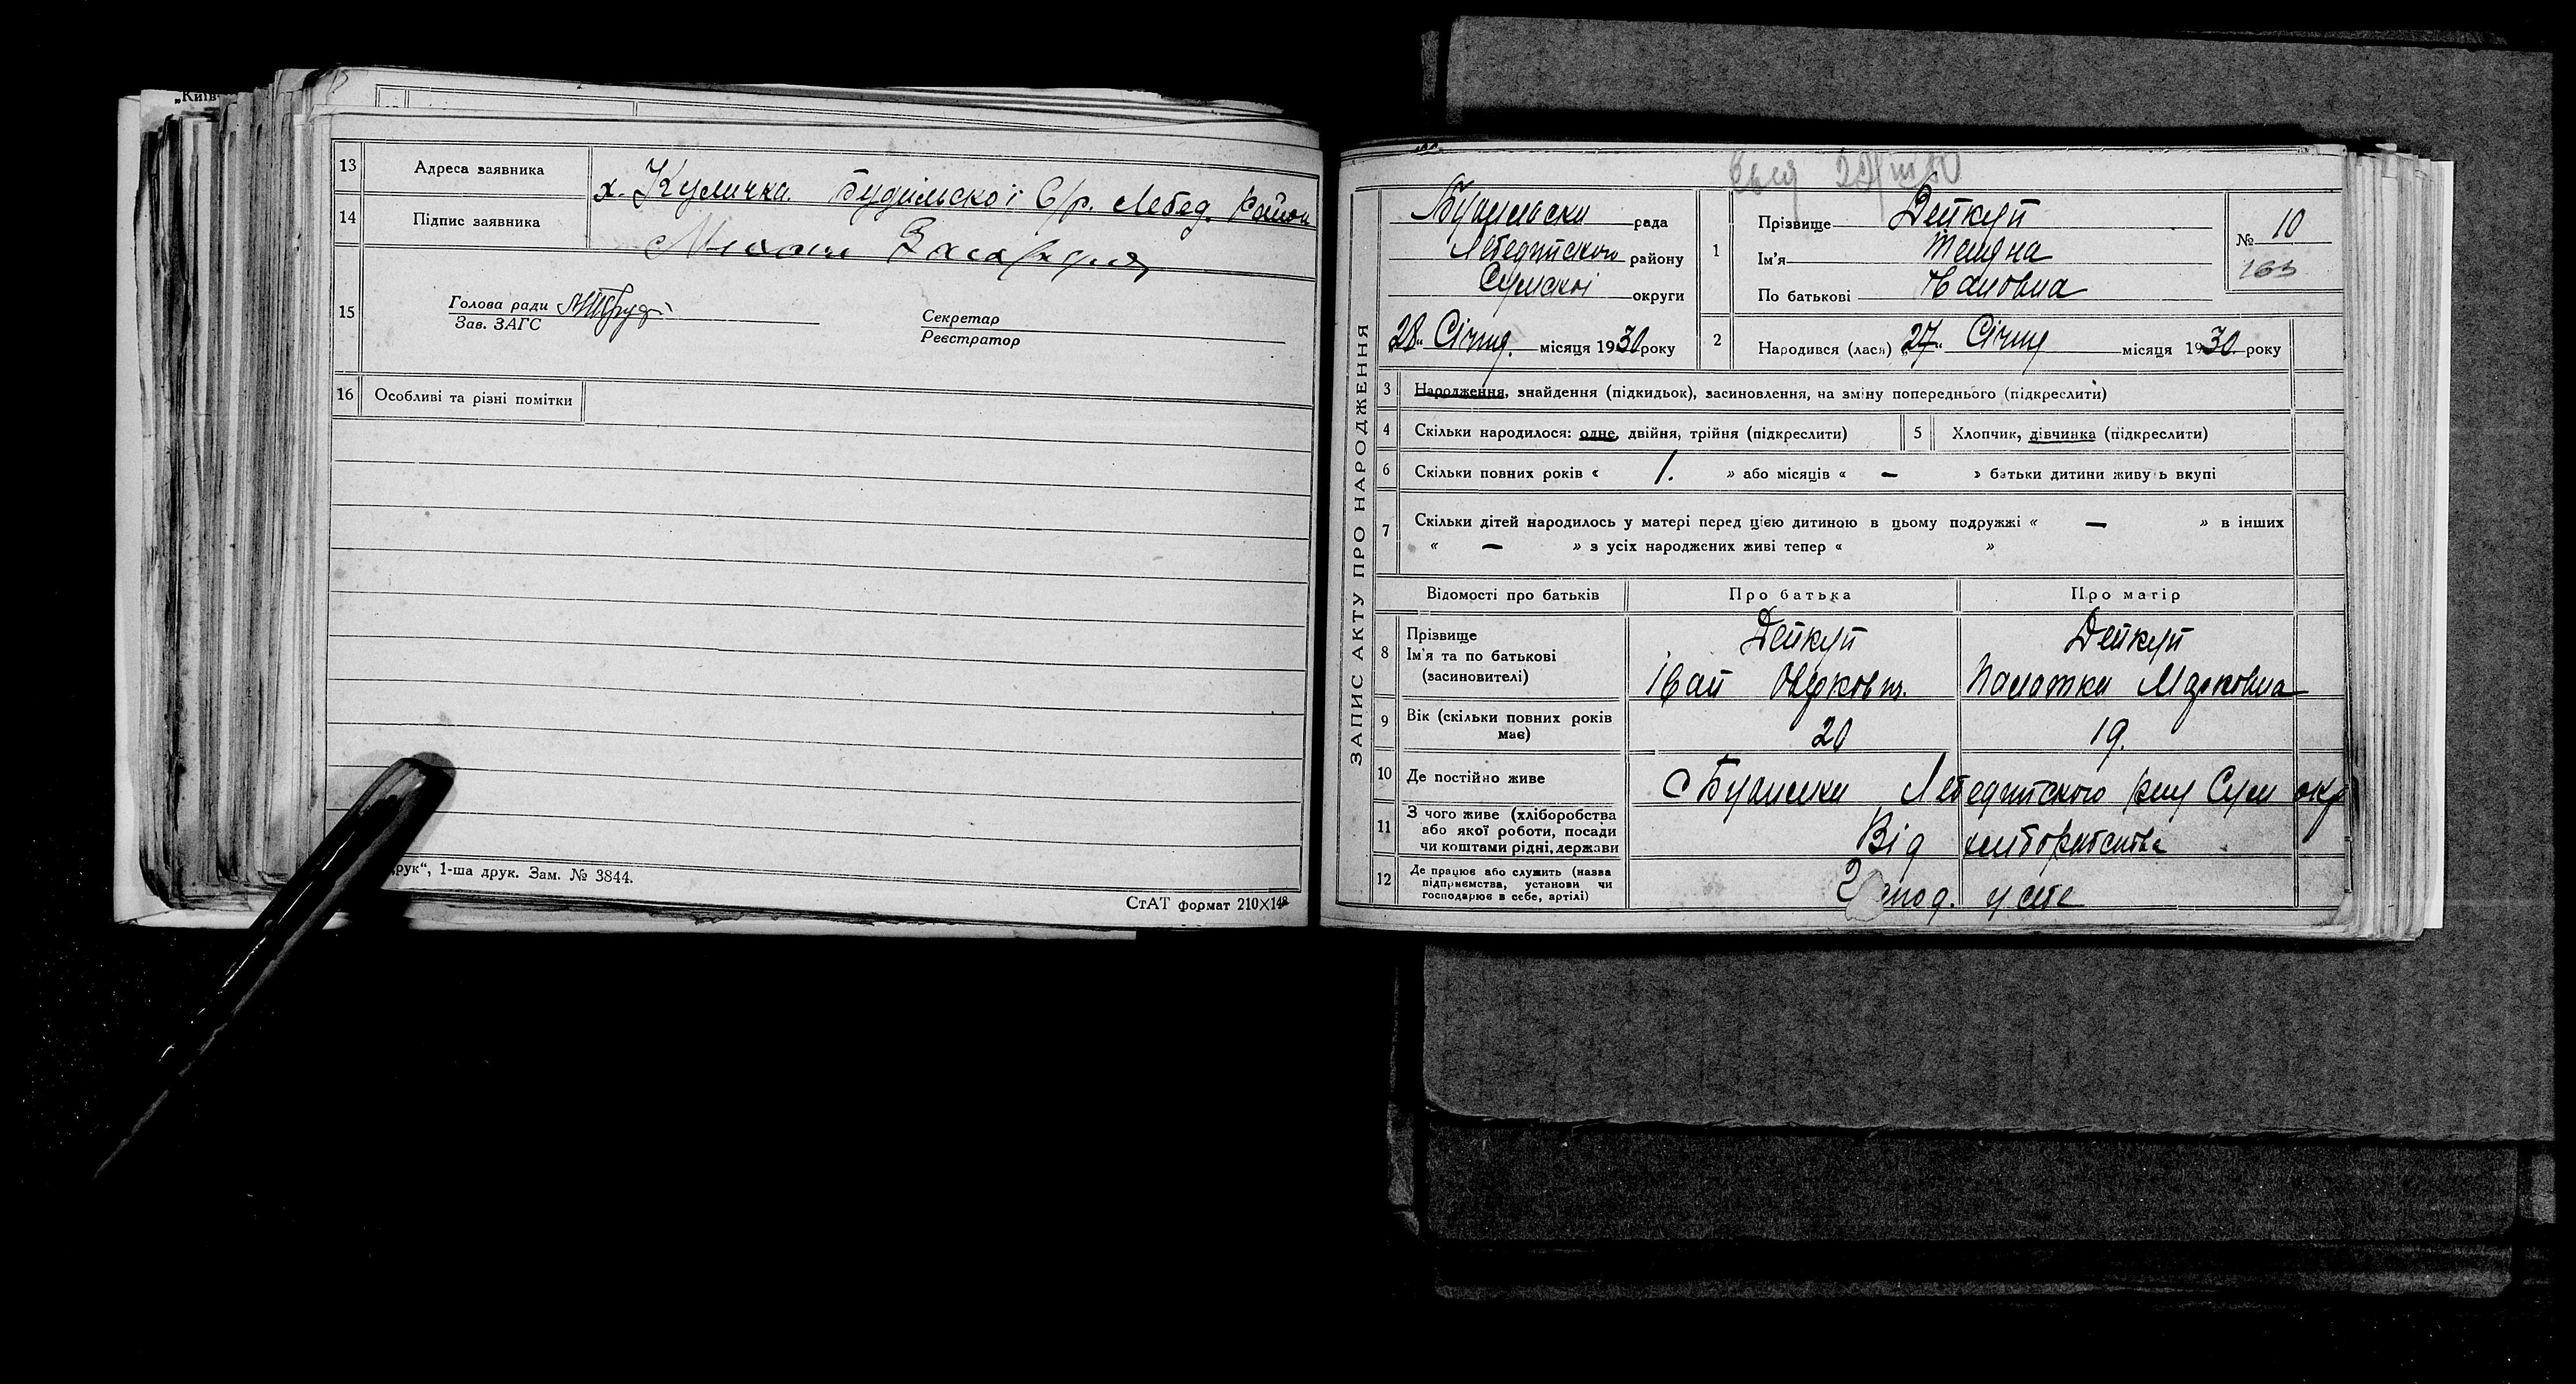 „Київ-
13 Адреса заявника х. Куличка Будильської С/р. Лебед. район
14 Підпис заявника
15 Голова ради
Зав. ЗАГС
Секретар
Реєстратор
16 Особливі та різні помітки
друк“, 1-ша друк. Зам. № 3844.
СтАТ формат 210×148
ЗАПИС АКТУ ПРО НАРОДЖЕННЯ
рада
Лебединського району
Сумської округи
„28“ Січня місяця 1930 року
1 Прізвище Дейкун
Ім'я Тетяна
По батькові
№ 10
2 Народився (лася) „27“ Січня місяця 1930 року
3 Народження, знайдення (підкидьок), засиновлення, на зміну попереднього (підкреслити)
4 Скільки народилося: одне, двійня, трійня (підкреслити) 5 Хлопчик, дівчинка (підкреслити)
6 Скільки повних років « 1. » або місяців « — » батьки дитини живуть вкупі
7 Скільки дітей народилось у матері перед цією дитиною в цьому подружжі « — » в інших
« — » з усіх народжених живі тепер « »
Відомості про батьків Про батька Про матір
8 Прізвище
Ім'я та по батькові
(засиновителі)
Дейкун Дейкун
Іван Марковна
9 Вік (скільки повних років має) 20 19.
10 Де постійно живе с Лебединського Сум окр
11 З чого живе (хліборобства
або якої роботи, посади
чи коштами рідні, держави
Від хліборобства
12 Де працює або служить (назва
підприємства, установи чи
господарює в себе, артілі)
Господ. у себе